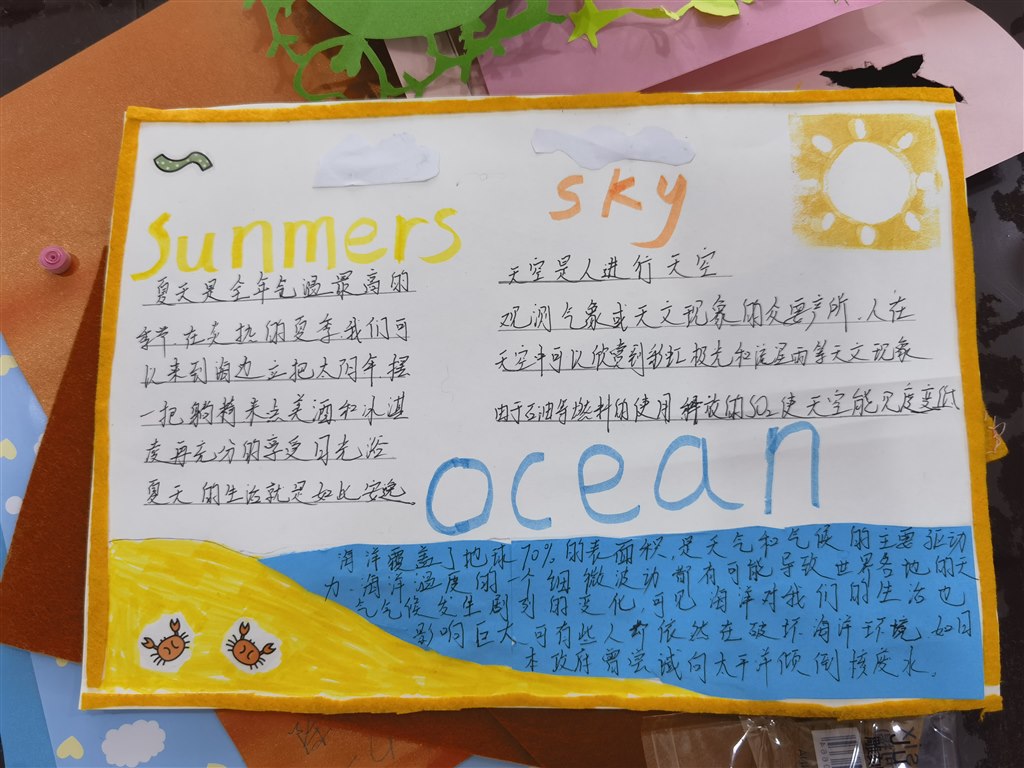 Sunmers
夏天是全年气温最高的
季节.在炎热的夏季.我们可
以来到海边立把太阳伞摆
一把躺椅来点美酒和冰淇
凌再充分的享受日光浴
夏天的生活就是如此安逸.
sky
天空是人进行天空
观测气象或天文现象的重要场所.人在
天空中可以欣赏到彩虹极光和流星雨等天文现象
由于石油等燃料的使用释放的SO2使天空能见度变低
ocean
海洋覆盖了地球70%的表面积.是天气和气候的主要驱动
力.海洋温度的一个细微波动都有可能导致世界各地的天
气气候发生剧烈的变化.可见海洋对我们的生活也
影响巨大可有些人却依然在破坏海洋环境如日
本政府曾尝试向太平洋倾倒核废水。